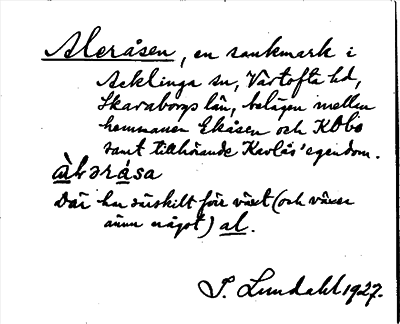 Aleråsen, en sankmark i
Acklinga sn, Vartofta hd,
Skaraborgs län, belägen mellan
hemmanen Ekåsen och Kobo
samt tillhörande Kavlås' egendom.
Där har särskilt förr växt (och växer
ännu något) al.
S. Lundahl 1927.